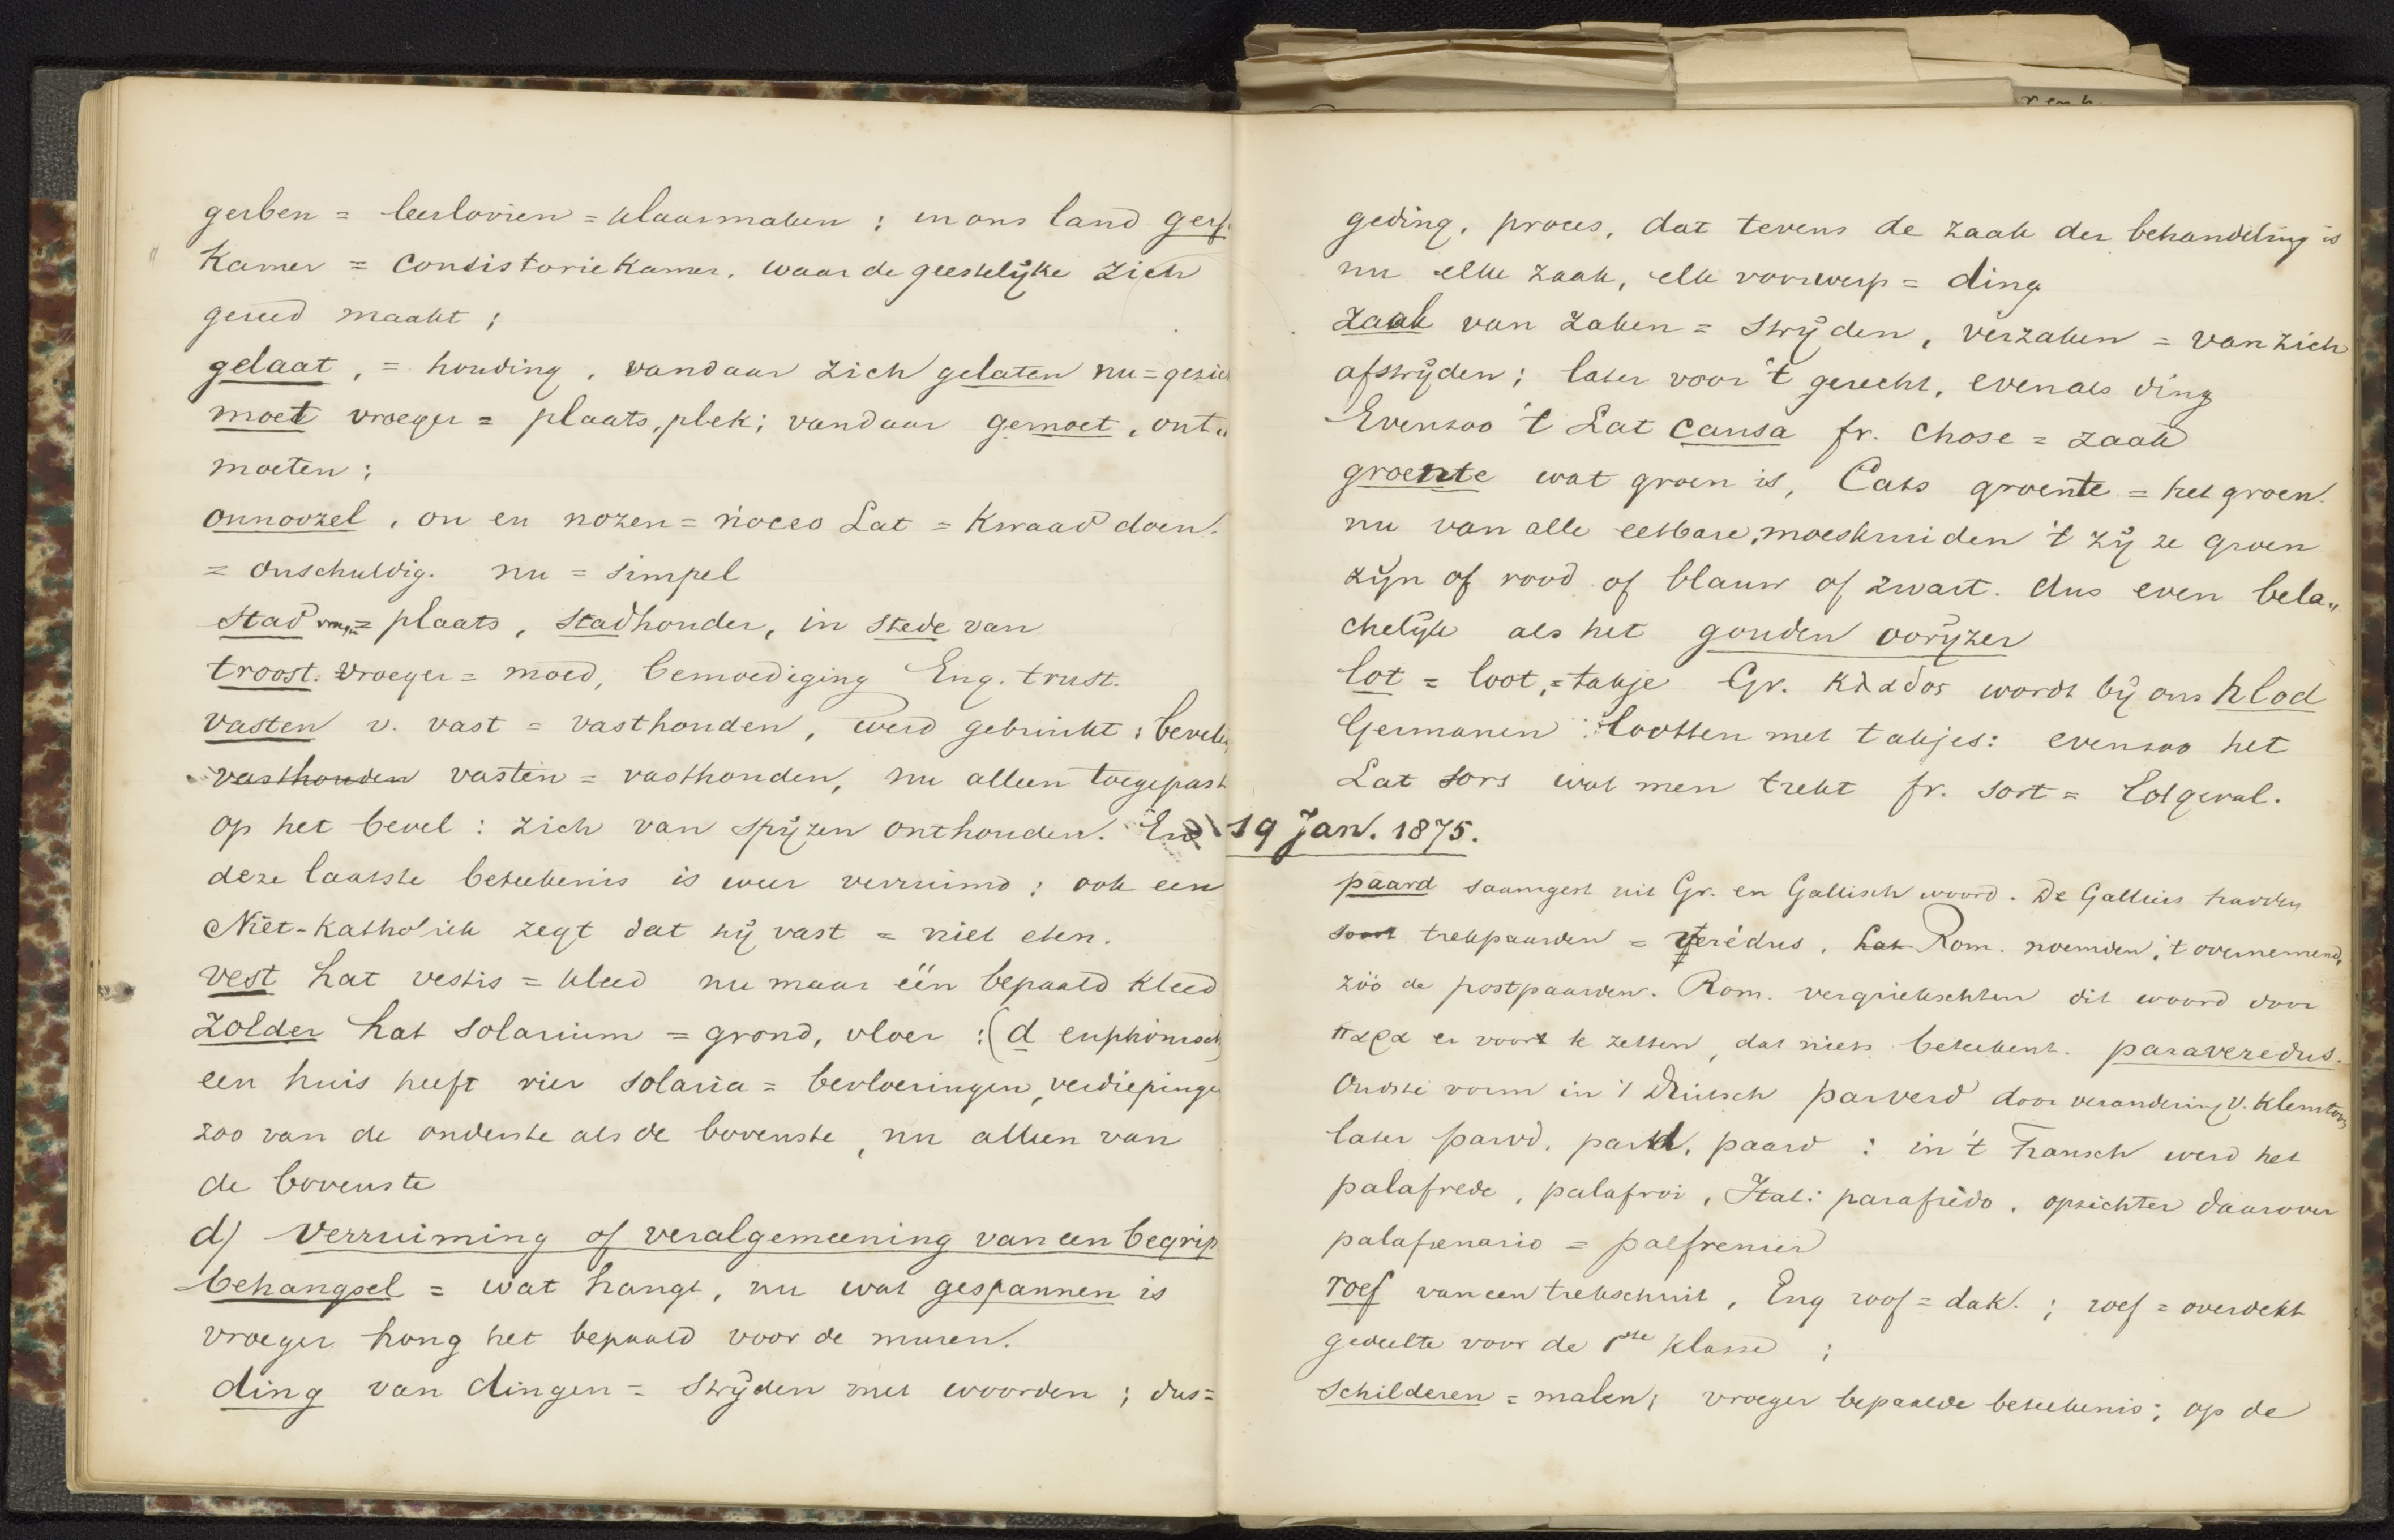 gerben = leerlooien = klaarmaken ; in ons land gerf
Kamer = Consistoriekamer, waar de geestelijke zich
gereed maakt ;
gelaat, = houding, vandaar zich gelaten nu = gezich
moet vroeger = plaats, plek; vandaar gemoet, ont„
moeten ;
onnoozel, on en nozen = noceo Lat = kwaad doen.
= onschuldig. nu = simpel
stad vroeger = plaats, stadhouder, in stede van
troost. vroeger = moed, bemoediging Eng. trust.
vasten v. vast = vasthouden, werd gebruikt : bevelen
vasthouden vasten = vasthouden, nu alleen toegepast
op het bevel : zich van spijzen onthouden. En
deze laatste beteekenis is weer verruimd ; ook een
Niet-Katholiek zegt dat hij vast = niet eten.
vest Lat vestis = kleed nu maar één bepaald kleed
zolder Lat solarium = grond, vloer : (d euphonisch)
een huis heeft vier solaria = bevloeringen, verdiepingen
zoo van de onderste als de bovenste, nu alleen van
de bovenste
d) Verruiming of veralgemeening van een begrip
behangsel = wat hangt, nu wat gespannen is
vroeger hong het bepaald voor de muren.
ding van dingen = strijden met woorden ; dus =
geding, proces, dat tevens de zaak der behandeling is
nu elke zaak, elk voorwerp = ding
zaak van zaken = strijden, verzaken = van zich
afstrijden; later voor 't gerecht, evenals ding
Evenzoo 't Lat causa fr. chose = zaak
groente wat groen is, Cats groente = het groen.
nu van alle eetbare moeskruiden 't zij ze groen
zijn of rood of blauw of zwart. dus even bela„
chelijk als het gouden oorijzer
lot = loot, = takje Gr. κλαδος wordt bij ons hlod
Germanen lootten met takjes: evenzoo het
Lat sors wat men trekt fr. sort = Lotgeval.
19 Jan. 1875.
paard saamgest uit Gr. en Gallisch woord. De Galliërs hadden
soort trekpaarden = verédus, Lat Rom. noemden, 't overnemend,
zóó de postpaarden. Rom. vergriekschten dit woord door
παρα er voor te zetten, dat niets beteekent. paraveredus.
Oudste vorm in 't Duitsch parverd door verandering v. klemtoon,
later parvd, parid, paard : in 't Fransch werd het
palafrede, palafroi, Ital: parafrédo, opzichter daarover
palafrenario = palfrenier
roef van een trekschuit, Eng roof = dak. ; roef = overdekt
gedeelte voor de 1ste klasse ;
schilderen = malen; vroeger bepaalde beteekenis; op de